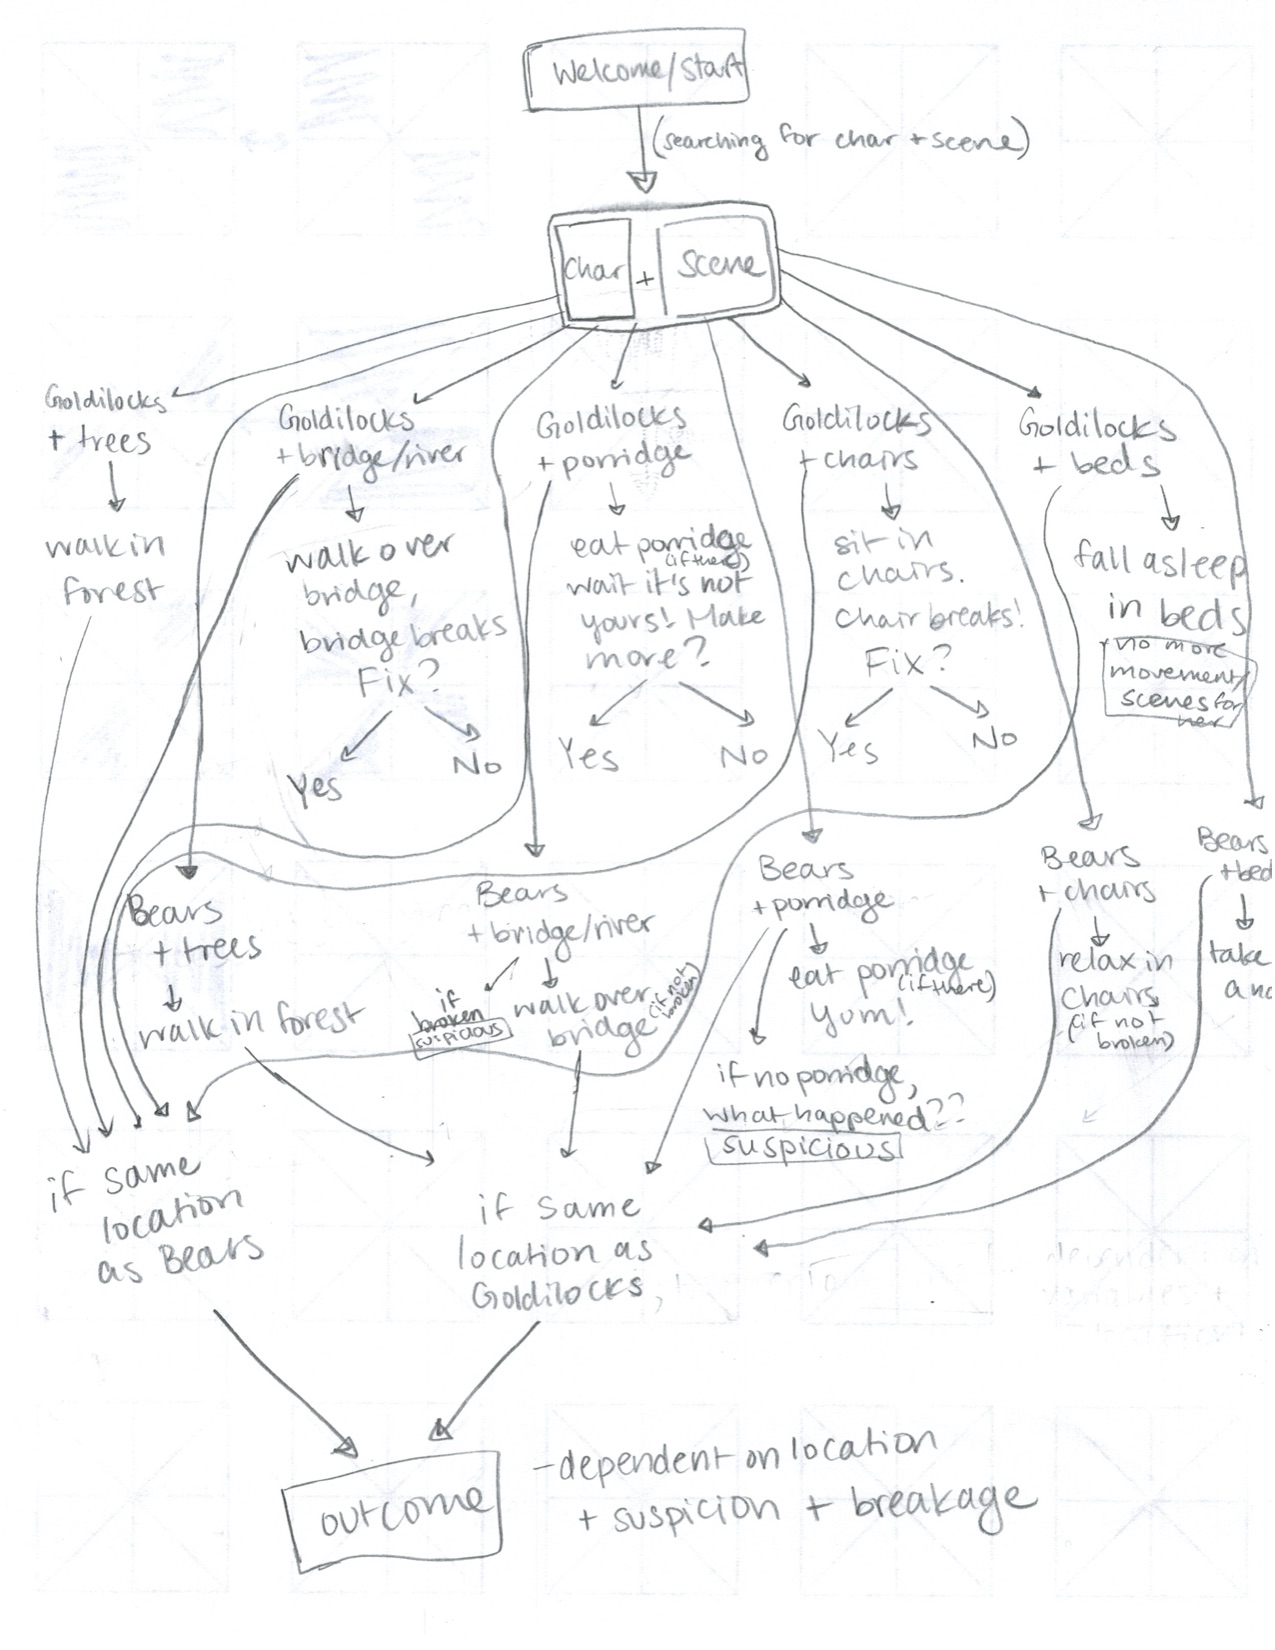 Welcome/Start
(searching for char + scene)
char + scene
Goldilocks
+ trees
walk in
forest
Goldilocks
+ bridge/river
walk over
bridge,
bridge breaks
Fix?
Yes
No
Goldilocks
+ porridge
eat porridge
(if there)
wait it's not
yours! Make
more?
Yes
No
Goldilocks
+ chairs
sit in
chairs.
chair breaks!
Fix?
Yes
No
Goldilocks
+ beds
fall asleep
in beds
no more
movement/
scenes for
her
Bears
+ trees
walk in forest
Bears
+ bridge/river
if
broken
suspicious
walk over
bridge
(if not
broken)
Bears
+ porridge
eat porridge
(if there)
Yum!
if no porridge,
what happened??
suspicious
Bears
+ chairs
relax in
chairs
(if not
broken)
Bears
+ bed
take
if same
location
as Bears
if same
location as
Goldilocks,
outcome
- dependent on location
+ suspicion + breakage